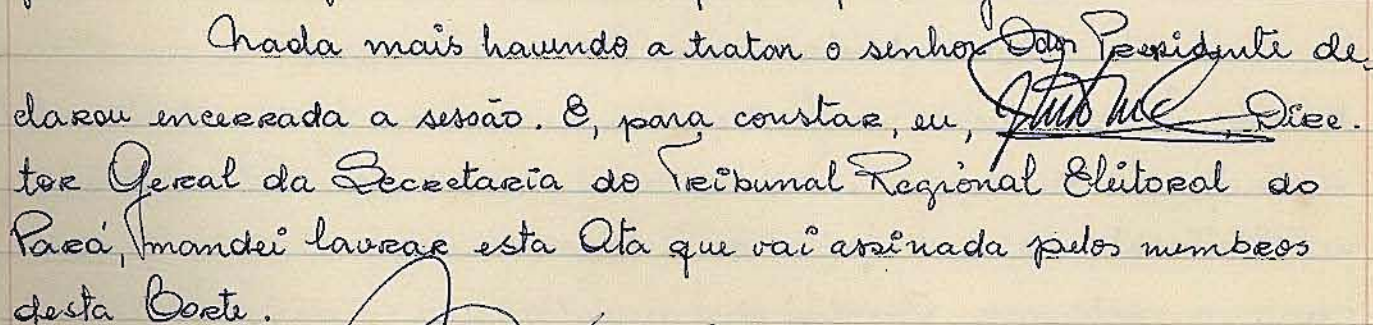 Nada mais havendo a tratar o senhor Des. Presidente de-
clarou encerrada a sessão. E, para constar, eu, , Dire-
tor Geral da Secretaria do Tribunal Regional Eleitoral do
Pará, mandei lavrar esta Ata que vai assinada pelos membros
desta Corte.